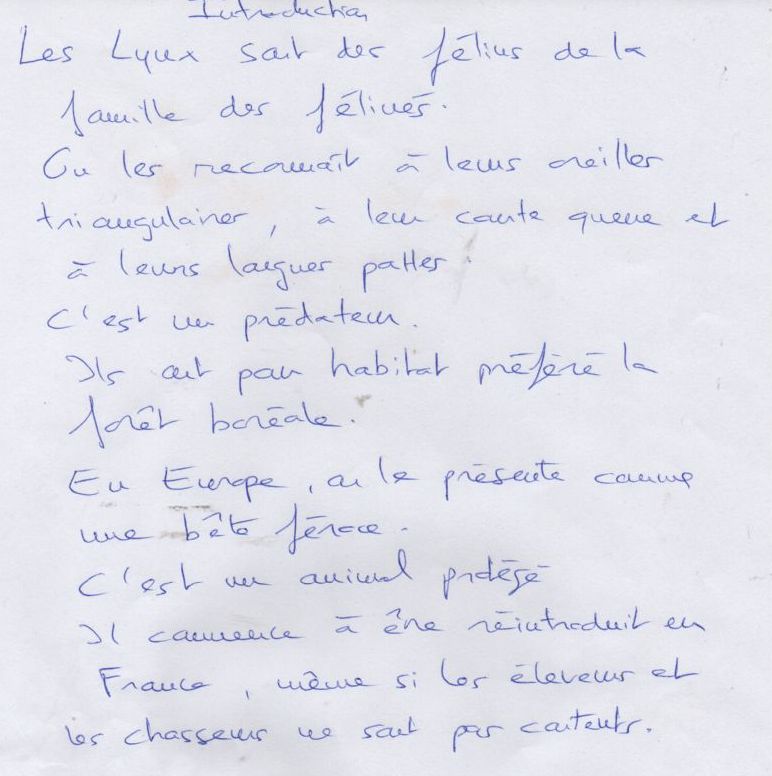 Introduction
Les Lynx sont des félins de la
famille des félinés.
On les reconnaît à leurs oreilles
triangulaires, à leur courte queue et
à leurs longues pattes.
C'est un prédateur.
Ils ont pour habitat préféré la
forêt boréale.
En Europe, on le présente comme
une bête féroce.
C'est un animal protégé
Il commence à être réintroduit en
France, même si les éleveurs et
les chasseurs ne sont pas contents.